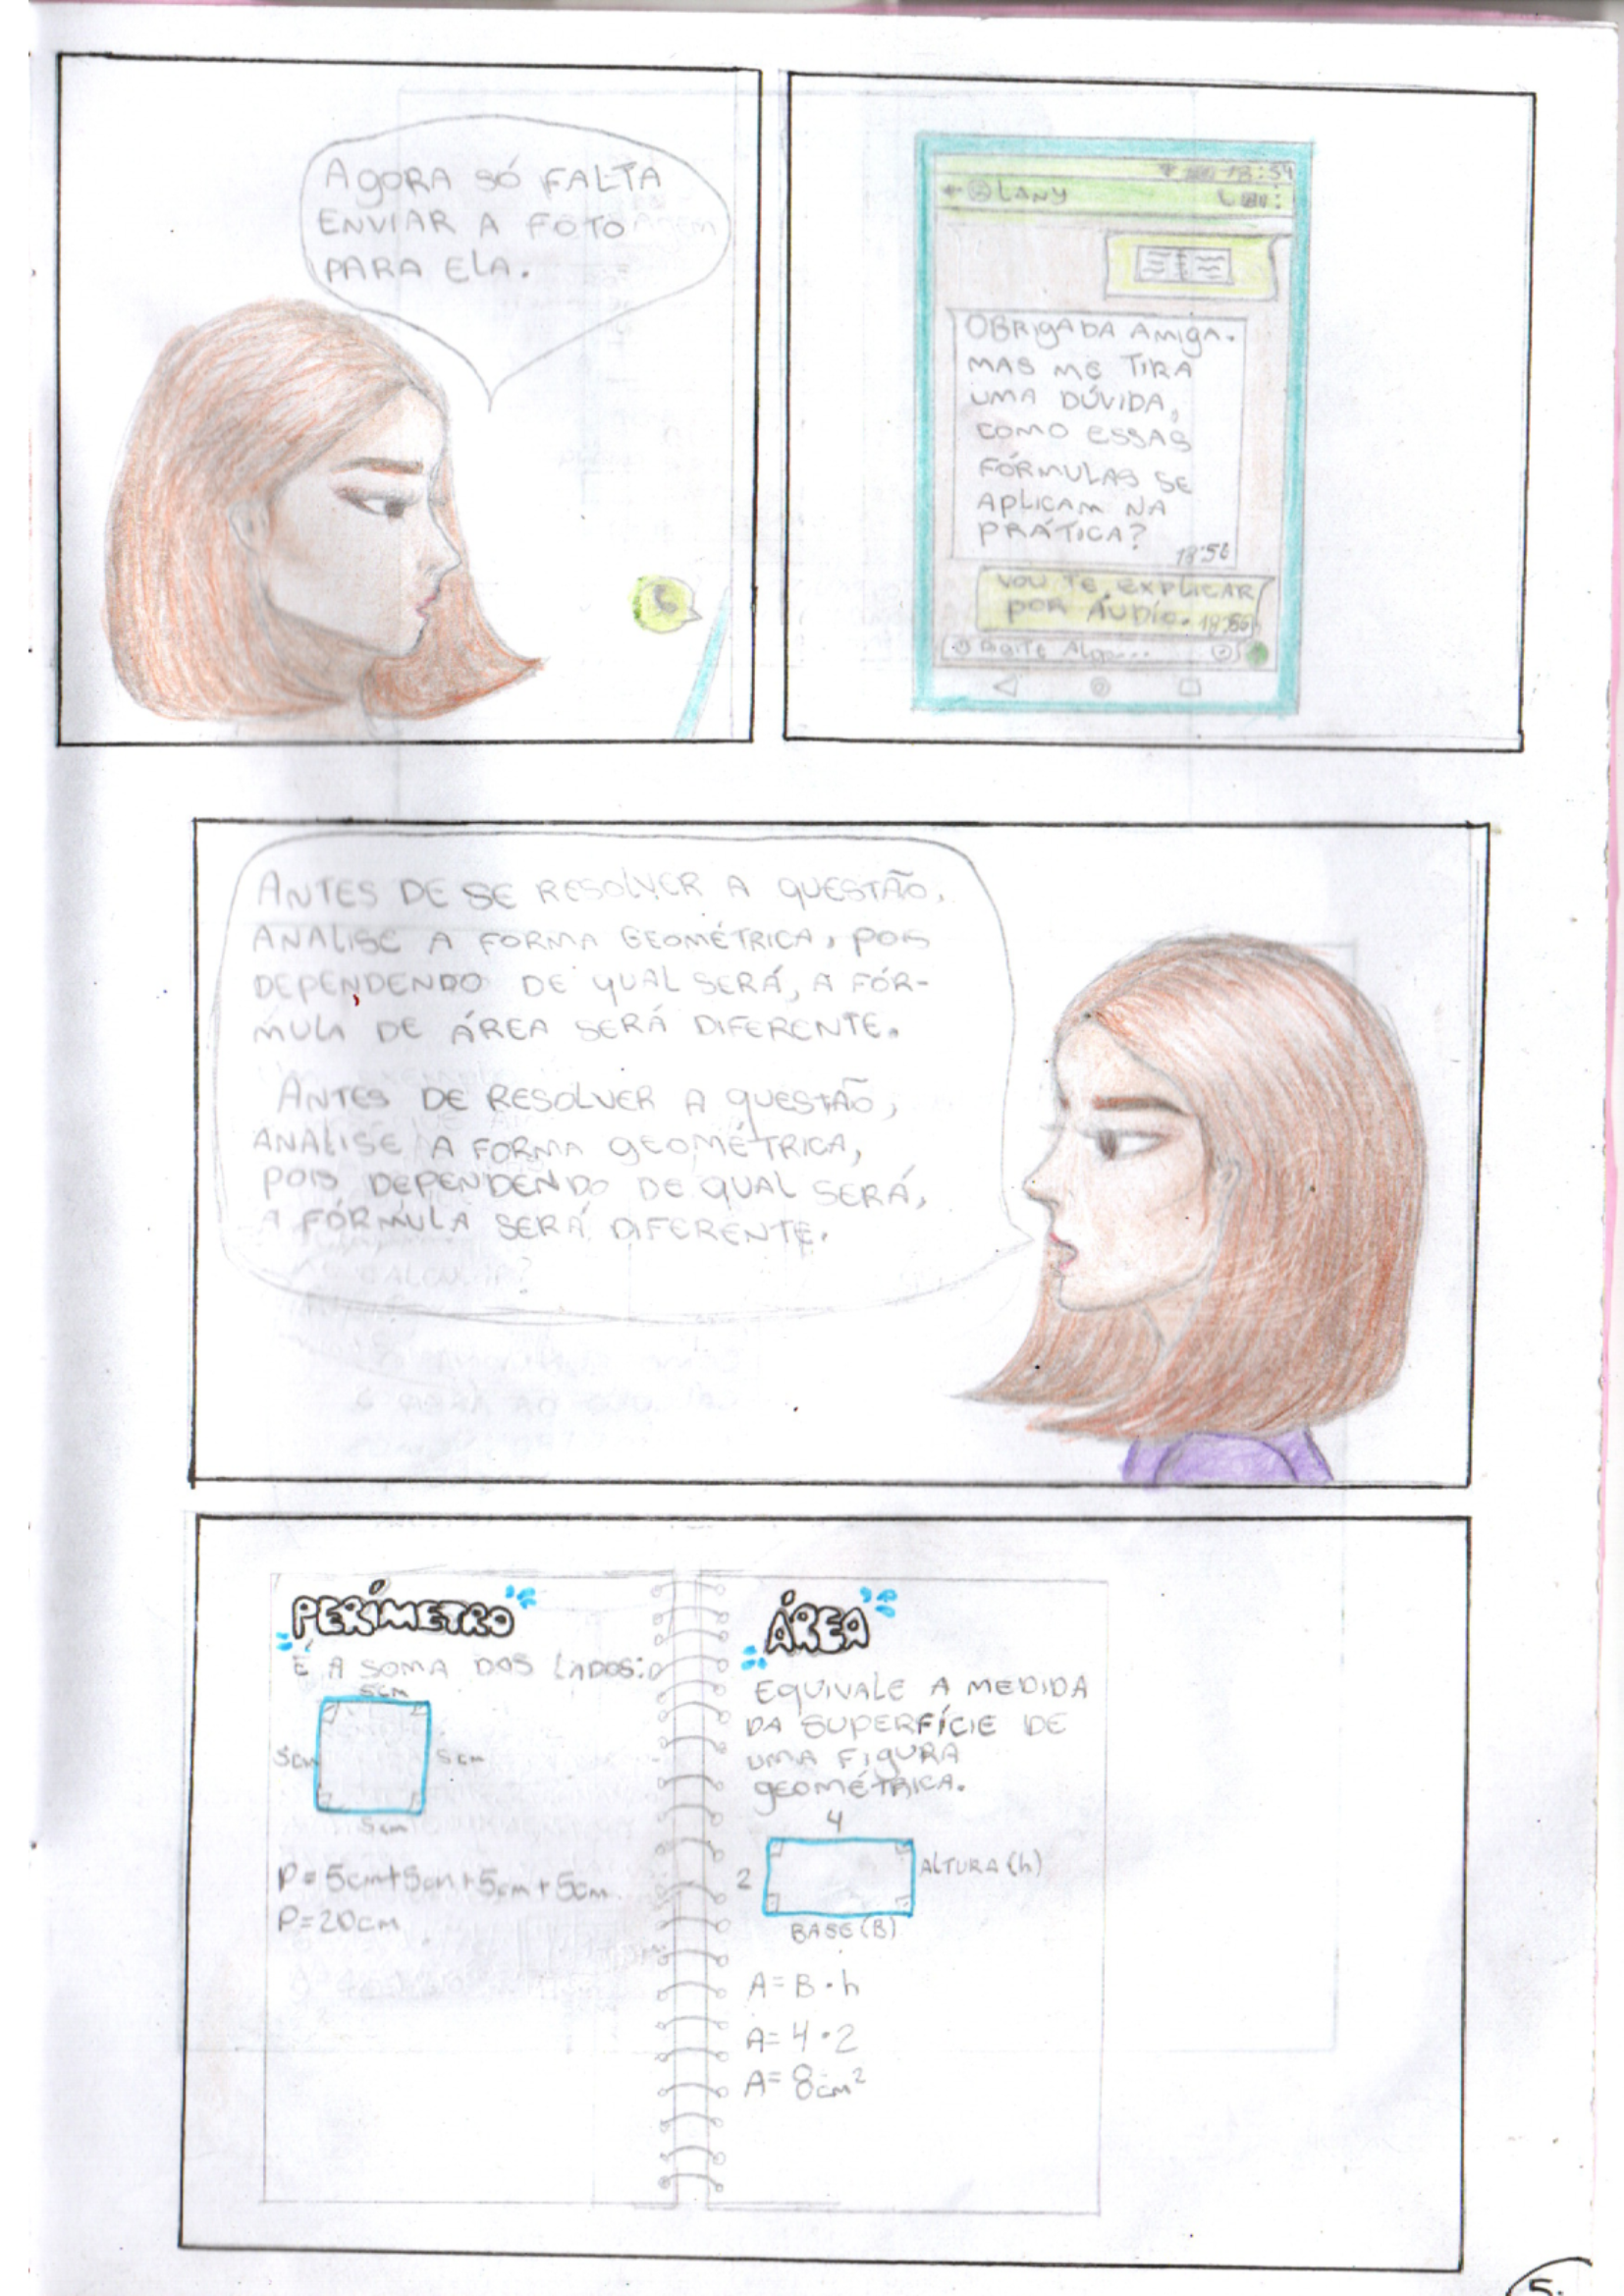 AGORA SÓ FALTA
ENVIAR A FOTO
PARA ELA.
18:54
LANY
OBRIGADA AMIGA.
MAS ME TIRA
UMA DÚVIDA,
COMO ESSAS
FÓRMULAS SE
APLICAM NA
PRÁTICA?
18:56
VOU TE EXPLICAR
POR ÁUDIO. 18:56
DIGITE ALGO...
ANTES DE SE RESOLVER A QUESTÃO,
ANALISE A FORMA GEOMÉTRICA, POIS
DEPENDENDO DE QUAL SERÁ, A FÓR-
MULA DE ÁREA SERÁ DIFERENTE.
ANTES DE RESOLVER A QUESTÃO,
ANALISE A FORMA GEOMÉTRICA,
POIS DEPENDENDO DE QUAL SERÁ,
A FÓRMULA SERÁ DIFERENTE.
PERÍMETRO
É A SOMA DOS LADOS:
5cm
5cm
5cm
5cm
P=5cm+5cm+5cm+5cm
P=20cm
ÁREA
EQUIVALE A MEDIDA
DA SUPERFÍCIE DE
UMA FIGURA
GEOMÉTRICA.
4
2
ALTURA (h)
BASE (B)
A=B·h
A=4·2
A=8cm²
5.